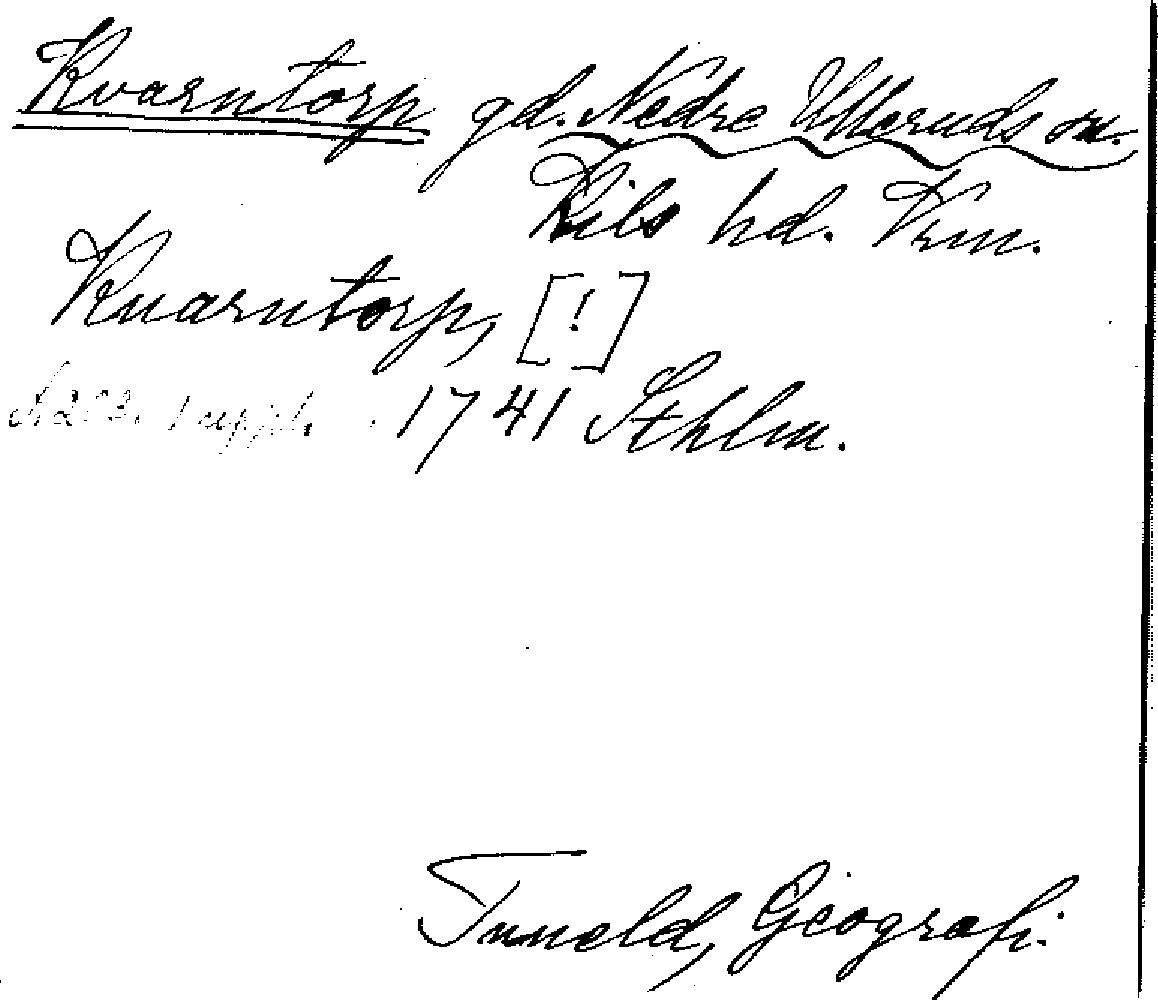 Kvarntorp gd. Nedre Ulleruds sn.
Kils hd. Vrm.
Kuarntorp, [!]
s. 203. 1 uppl. 1741 Sthlm.
Tuneld, Geografi.